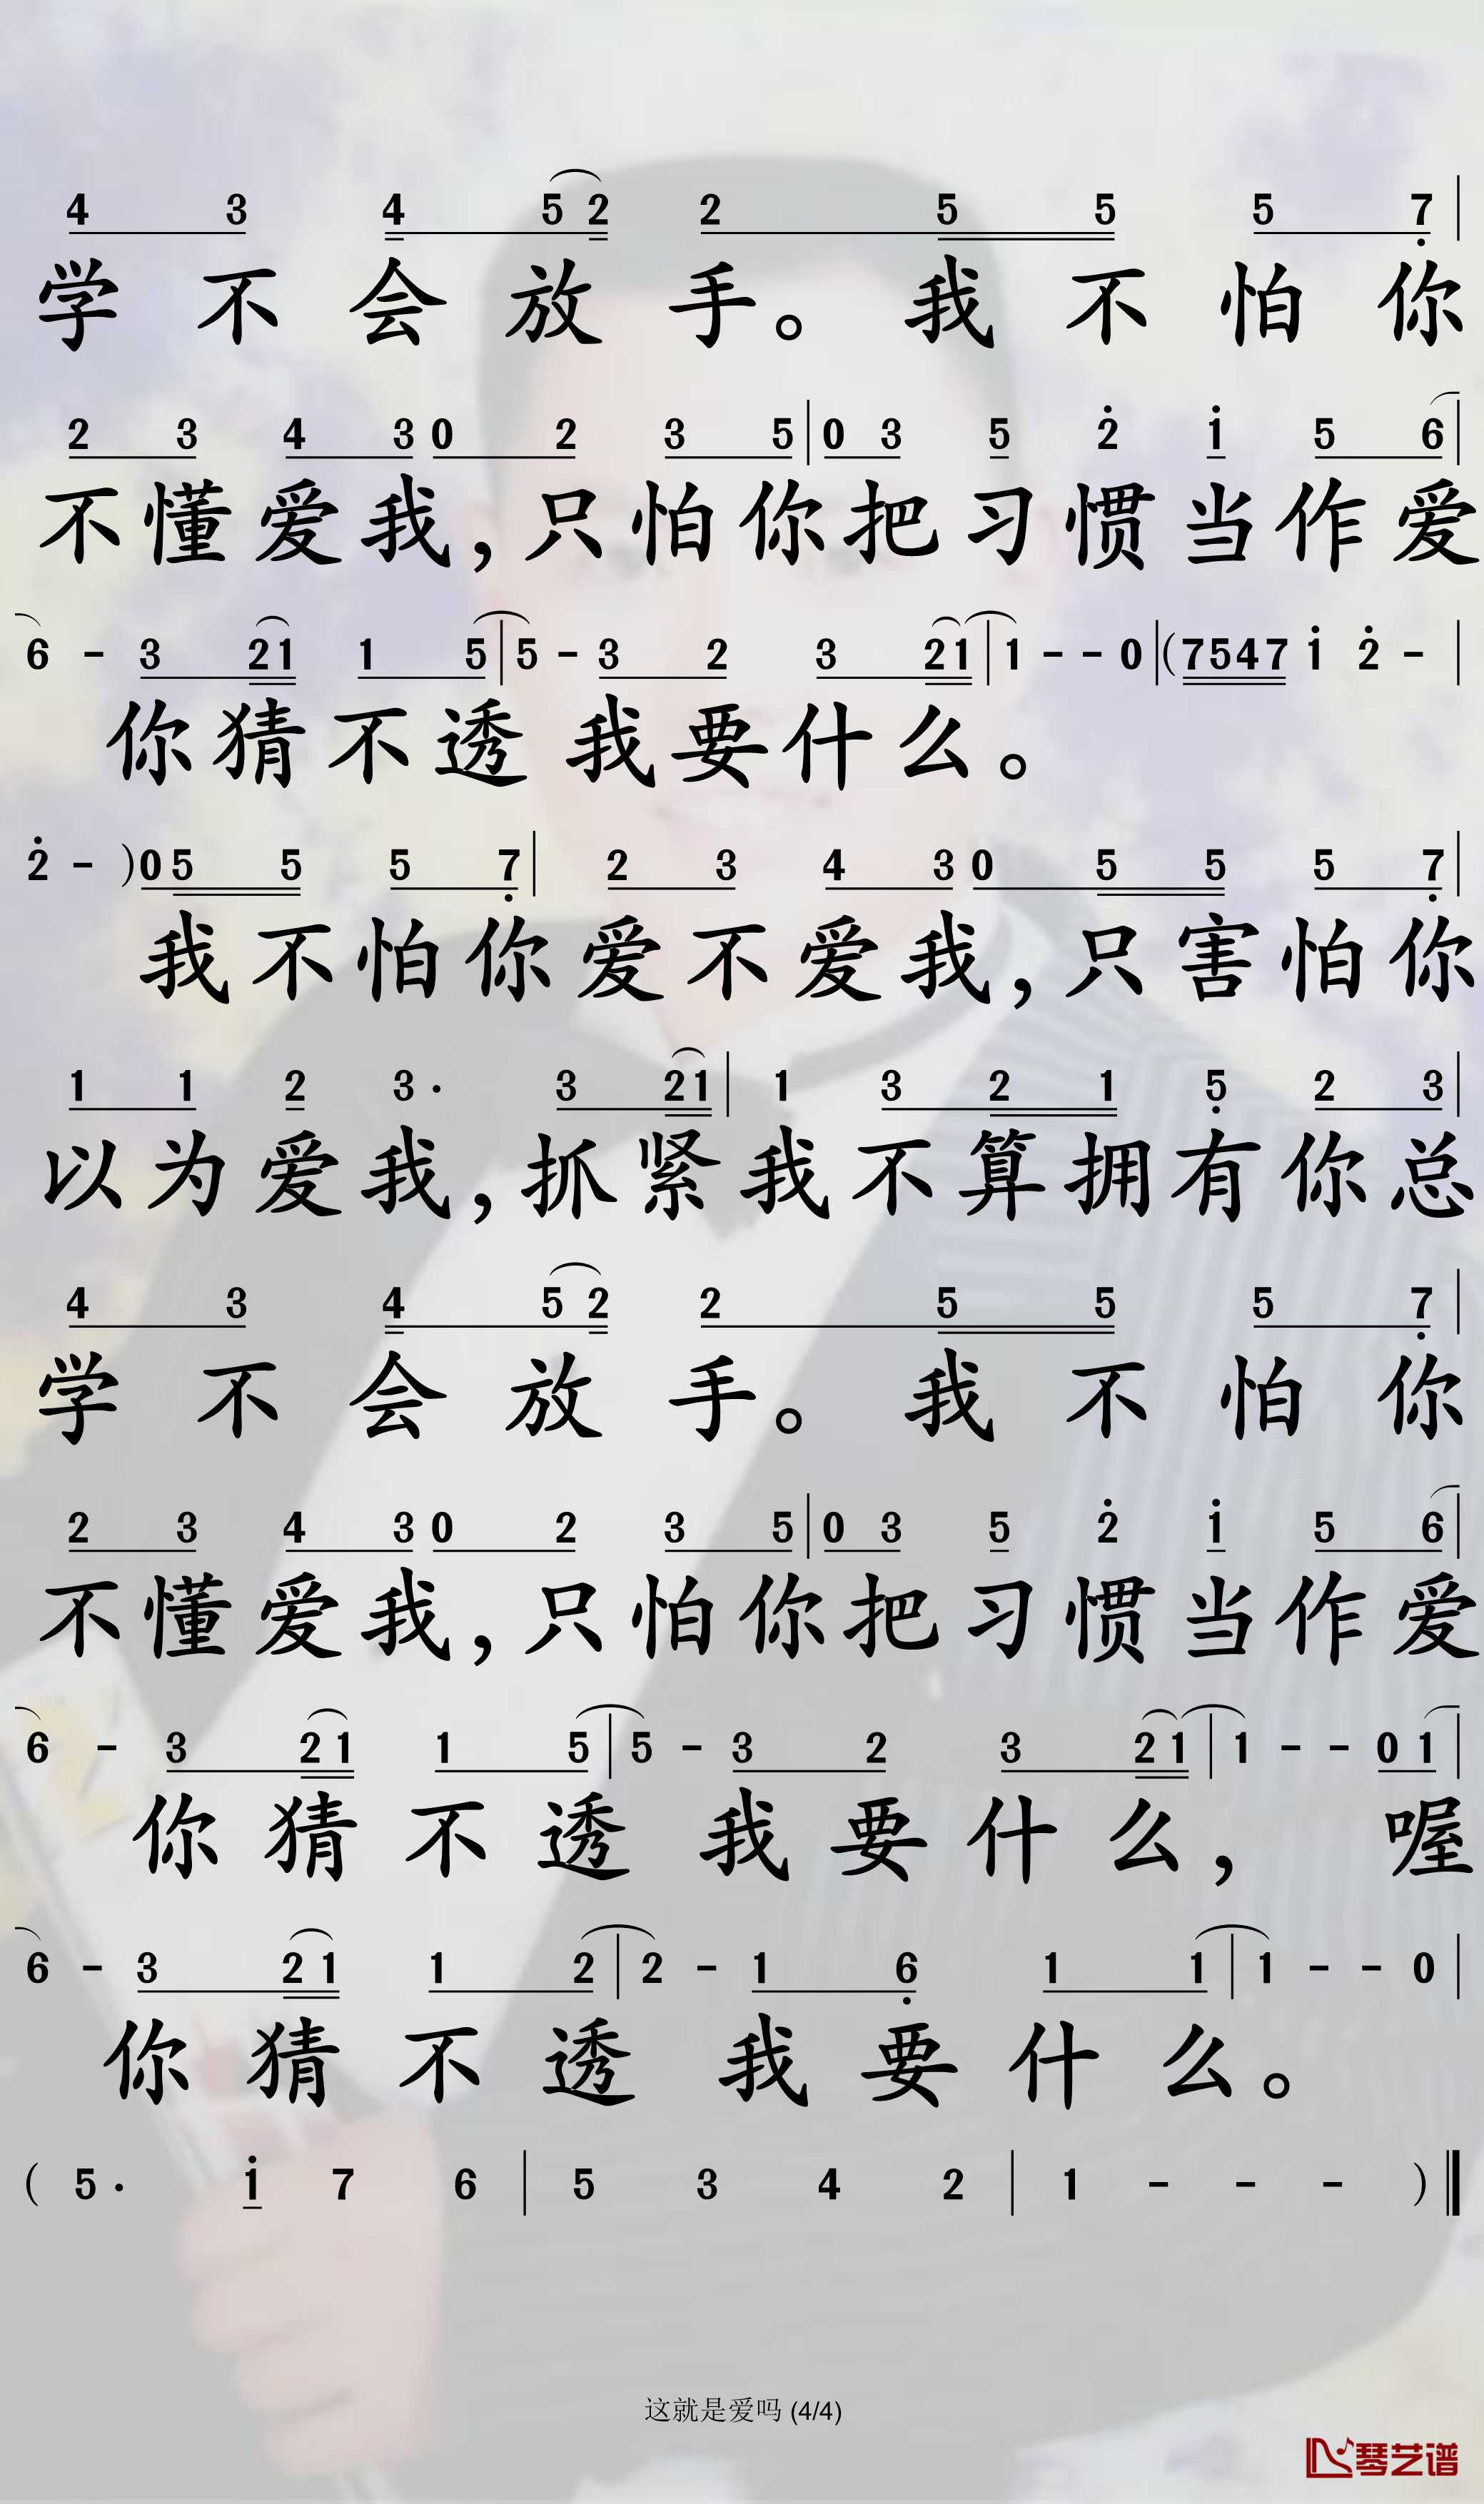 4 3 4 5 2 2 5 5 5 7
学不会放手。我不怕你
2 3 4 3 0 2 3 5 0 3 5 2 1 5 6
不懂爱我,只怕你把习惯当作爱
6 - 3 2 1 1 5 5 - 3 2 3 2 1 1 - - 0 (7 5 4 7 1 2 -
你猜不透我要什么。
2 - ) 0 5 5 5 7 2 3 4 3 0 5 5 5 7
我不怕你爱不爱我,只害怕你
1 1 2 3 · 3 2 1 1 3 2 1 5 2 3
以为爱我,抓紧我不算拥有你总
4 3 4 5 2 2 5 5 5 7
学不会放手。我不怕你
2 3 4 3 0 2 3 5 0 3 5 2 1 5 6
不懂爱我,只怕你把习惯当作爱
6 - 3 2 1 1 5 5 - 3 2 3 2 1 1 - - 0 1
你猜不透我要什么,喔
6 - 3 2 1 1 2 2 - 1 6 1 1 1 - - 0
你猜不透我要什么。
( 5 · 1 7 6 5 3 4 2 1 - - - )
这就是爱吗 (4/4)
琴艺谱